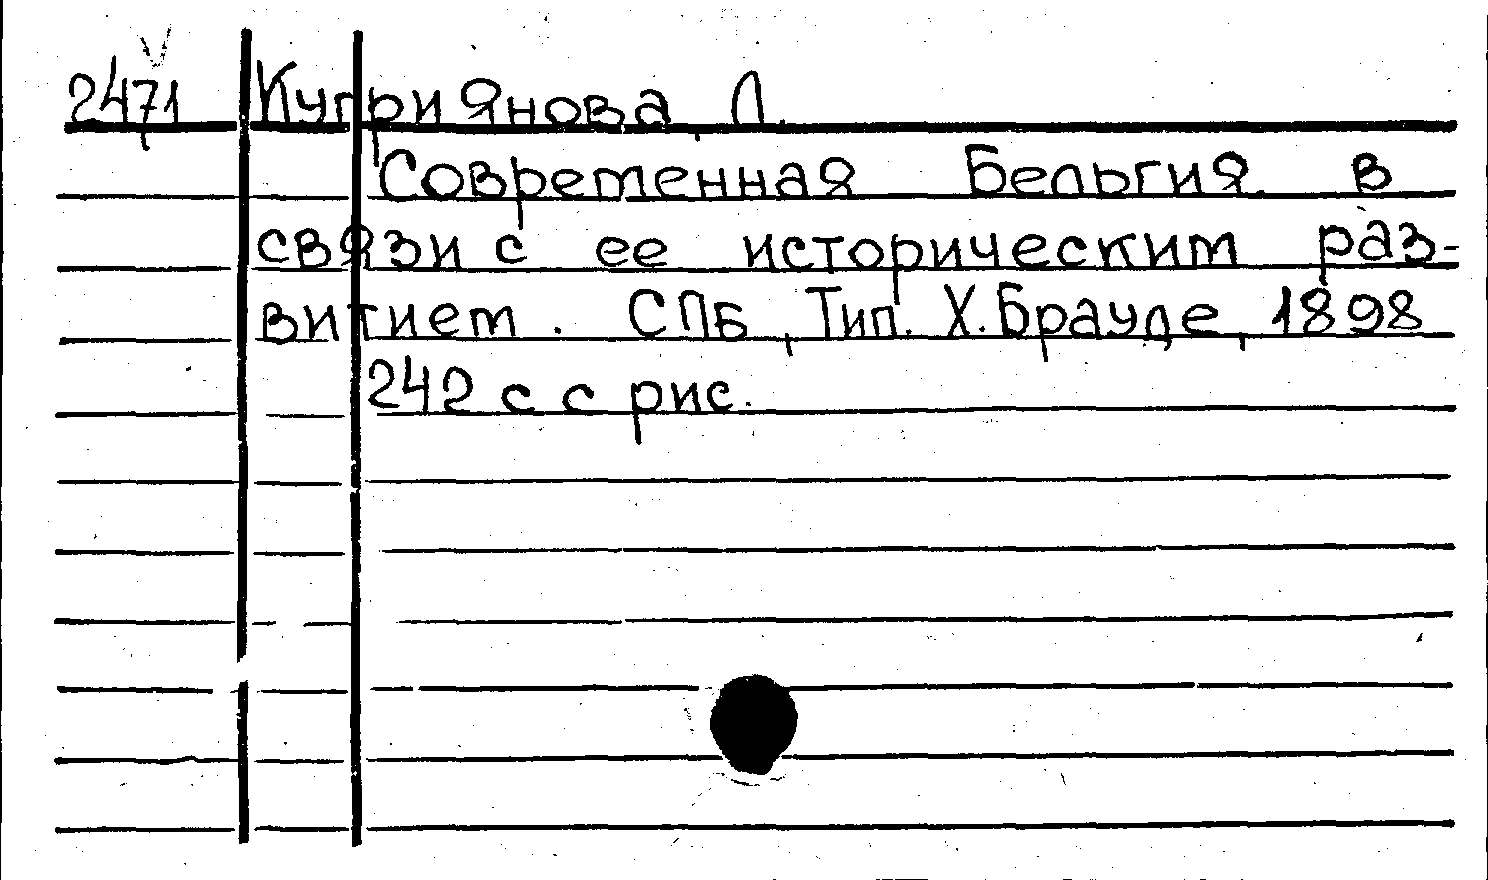 2471 Куприянова, Л.
Современная Бельгия в
связи с ее историческим раз-
витием. СПБ, Тип. Х. Брауде, 1898
242 с с рис.